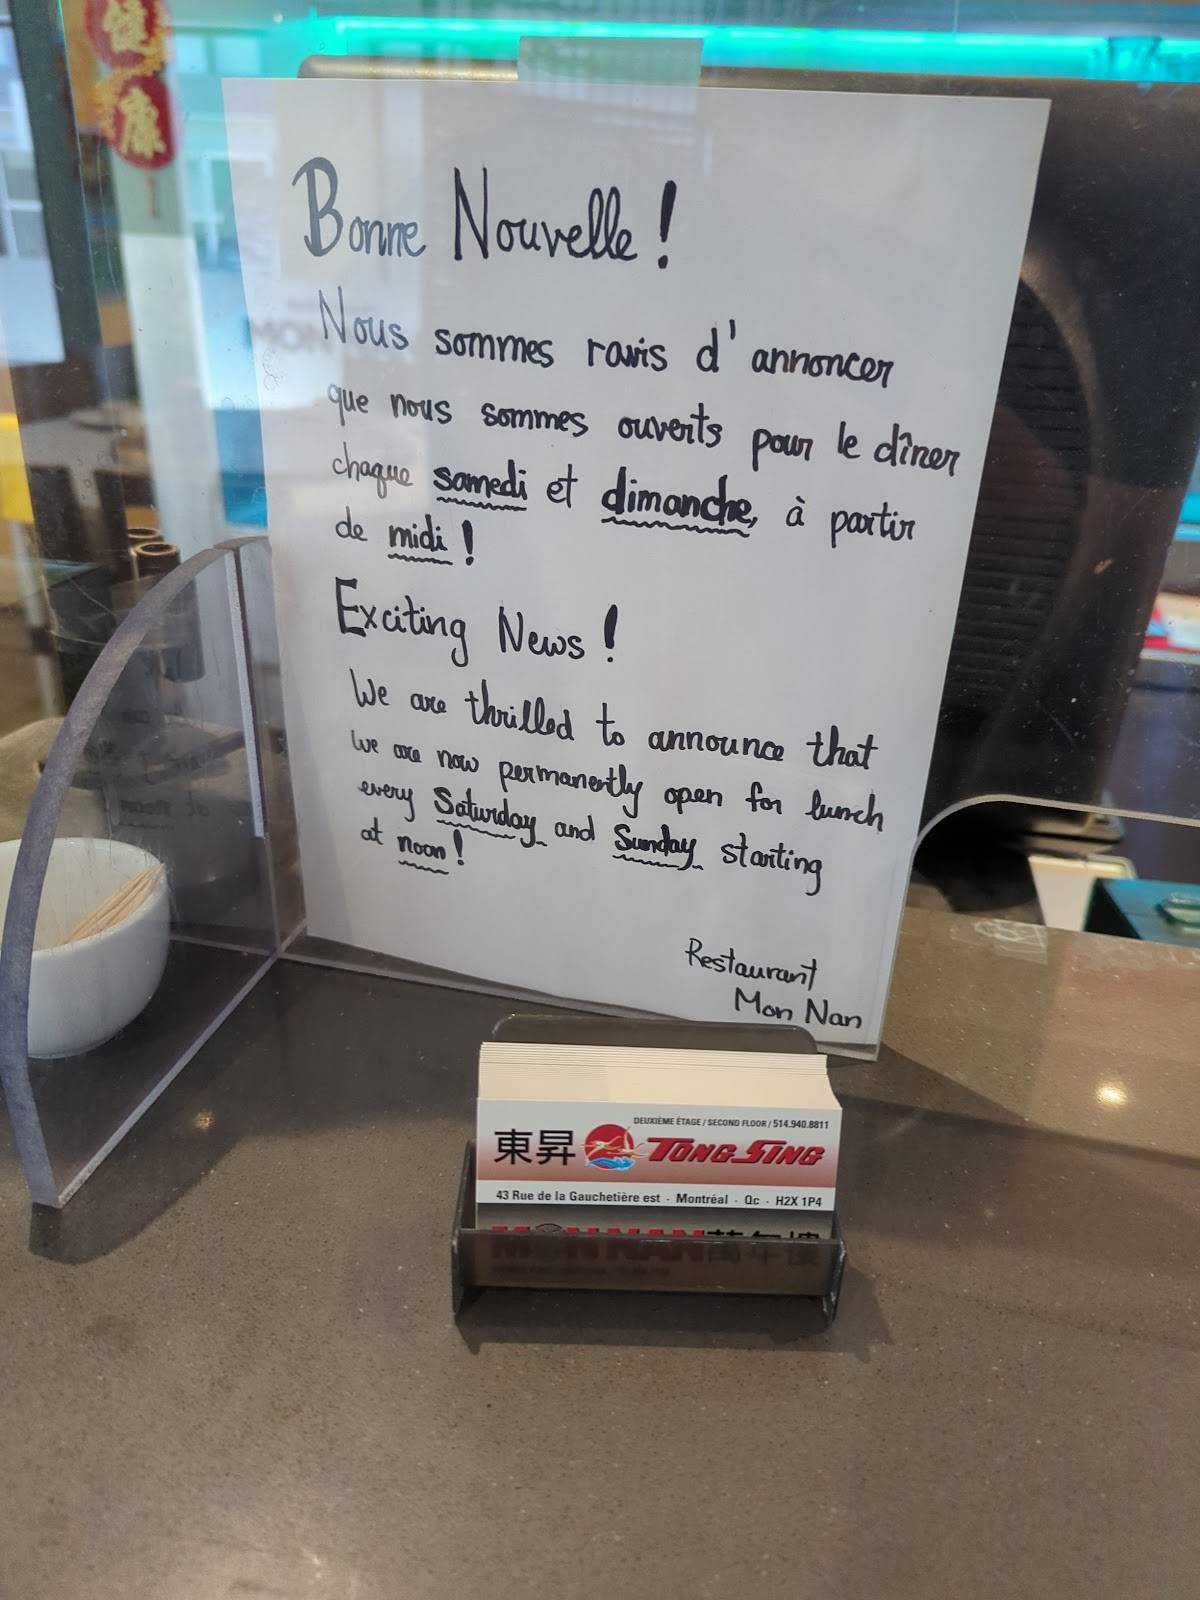 健
康
Bonne Nouvelle !
Nous sommes ravis d'annoncer
que nous sommes ouverts pour le dîner
chaque samedi et dimanche, à partir
de midi !
Exciting News !
We are thrilled to announce that
we are now permanently open for lunch
every Saturday and Sunday starting
at noon !
Restaurant
Mon Nan
DEUXIÈME ÉTAGE / SECOND FLOOR / 514.940.8811
東昇 TONG SING
43 Rue de la Gauchetière est · Montréal · Qc · H2X 1P4
MON NAN 萬年樓